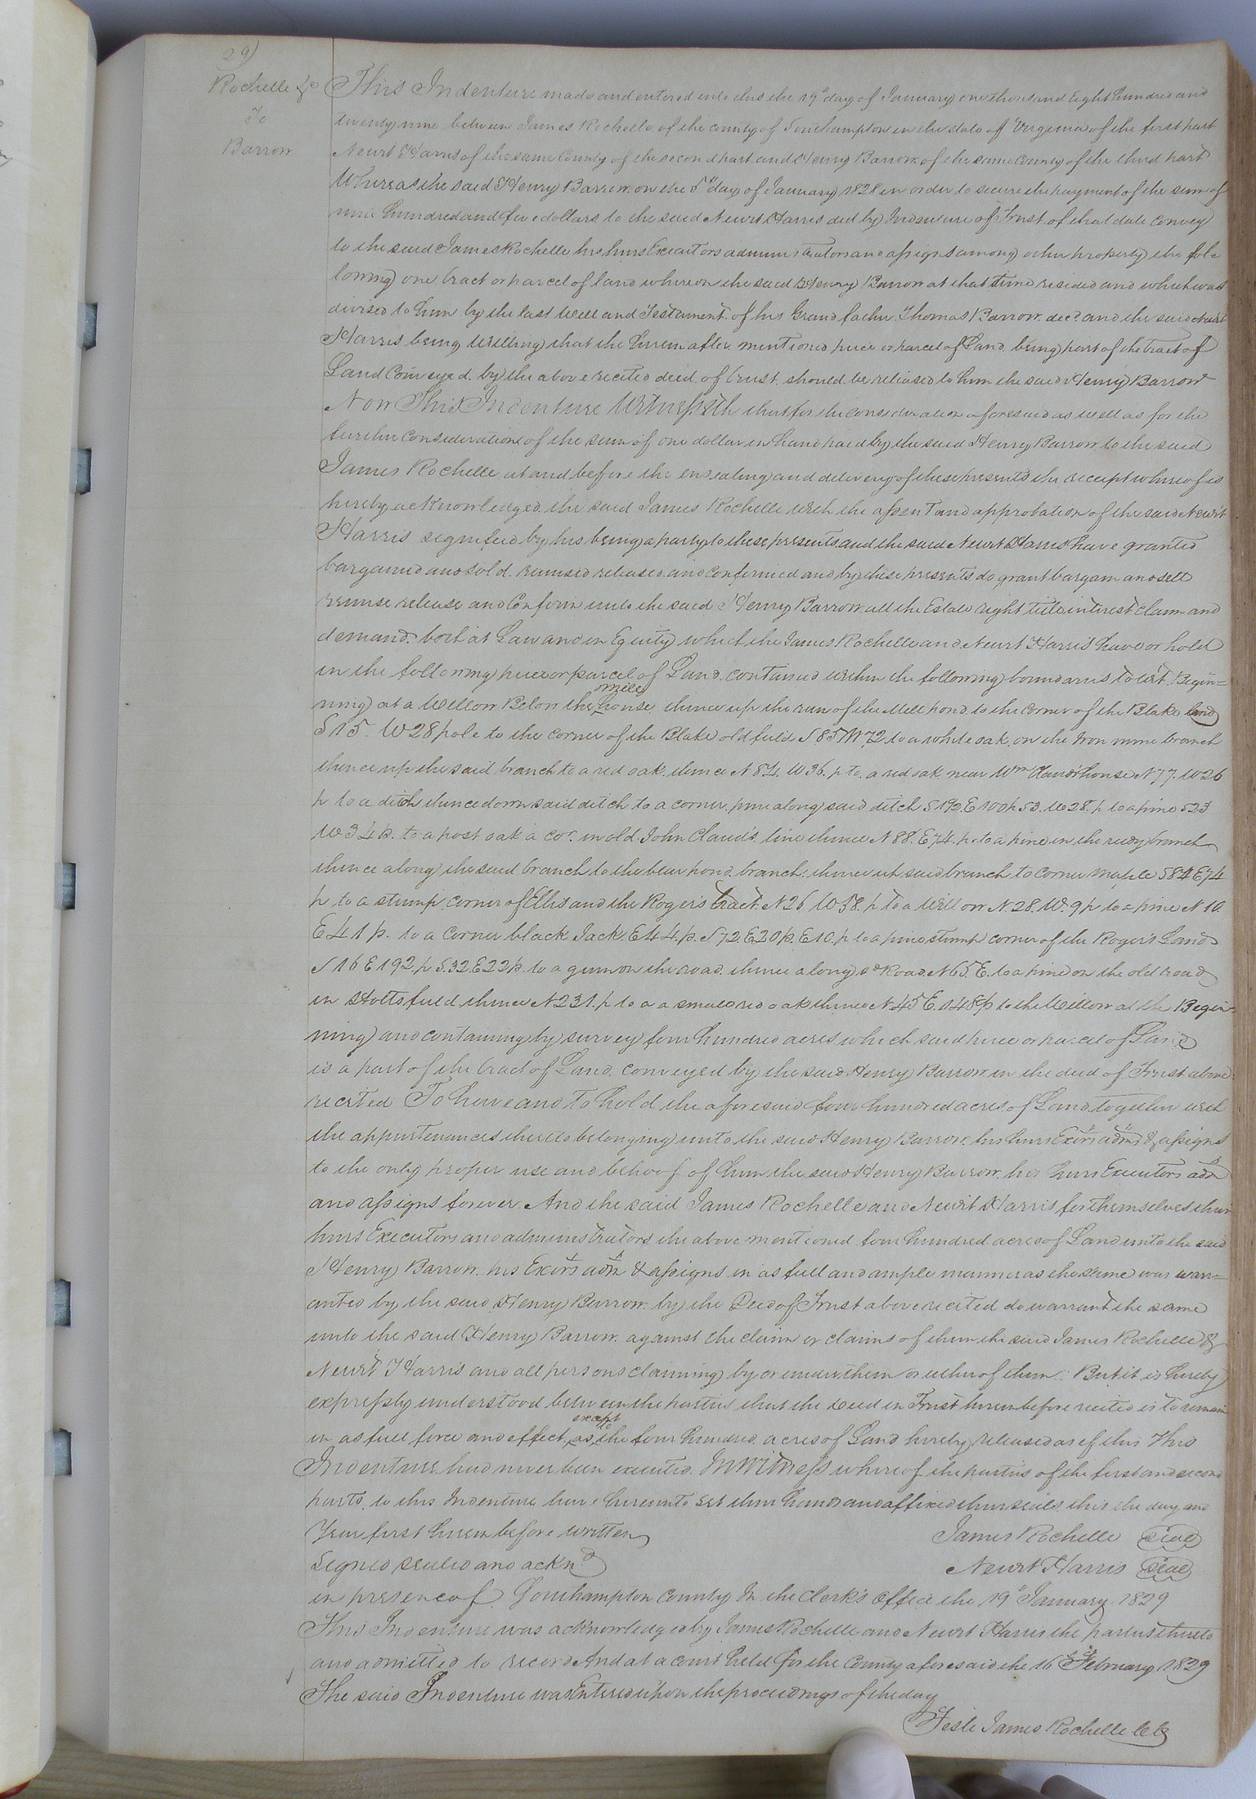 29)
Rochelle &c
To
Barrow
This Indenture made and entered into this the 19th day of January one thousand Eight hundred and
twenty nine between James Rochelle of the county of Southampton in the state of Virginia of the first part
Newit Harris of the same County of the second part and Henry Barrow of the same County of the third part
Whereas the said Henry Barrow on the 5th day of January 1828 in order to secure the payment of the sum of
nine hundred and five dollars to the said Newit Harris did by Indenture of Trust of that date convey
to the said James Rochelle his heirs Executors administrators and assigns among other property the fol
lowing one tract or parcel of land whereon the said Henry Barrow at that time resided and which was
devised to him by the last will and Testament of his Grand father Thomas Barrow decd and the said Newit
Harris being willing that the herein after mentioned piece or parcel of Land being part of the tract of
Land Conveyed by the above recited deed of trust should be released to him the said Henry Barrow
Now This Indenture Witnesseth that for the consideration aforesaid as well as for the
further consideration of the sum of one dollar in hand paid by the said Henry Barrow to the said
James Rochelle at and before the ensealing and delivery of these presents the receipt whereof is
hereby acknowledged the said James Rochelle with the assent and approbation of the said Newit
Harris signified by his being a party to these presents and the said Newit Harris have granted
bargained and sold remised released and confirmed and by these presents do grant bargain and sell
remise release and Confirm unto the said Henry Barrow all the Estate right title interest claim and
demand both at Law and in Equity which the James Rochelle and Newit Harris have or hold
in the following piece or parcel of Land contained within the following boundaries To wit Begin=
ning at a Willow Below the mill house thence up the run of the Mill pond to the corner of the Blake land
S 15 W 28 pole to the corner of the Blake old field S 85 W 72 to a white oak on the Iron mine branch
thence up the said branch to a red oak thence N 84 W 36 p to a red oak near Wm house N 77 W 26
p to a ditch thence down said ditch to a corner pine along said ditch S 19 1/2 E 100 p S 3 W 28 p to a pine S 23
W 34 p. to a post oak a cor. in old John Claud's line thence N 88 E 74 p to a pine in the reedy branch
thence along the said branch to the bear pond branch thence up said branch to corner maple S 84 E 74
p to a stump corner of Ellis and the Rogers tract N 26 W 58 p to a Willow N 28 W 9 p to a pine N 10
E 41 p. to a Corner black Jack E 44 p. S 72 E 20 p. E 10 p to a pine stump corner of the Rogers Land
S 16 E 192 p S 32 E 22 p. to a gum on the road thence along sd Road N 65 E to a pine on the old road
in Holts field thence N 23 1. p to a a small red oak thence N 45 E 148 p to the Willow at the Begin=
ning and containing by survey four hundred acres which said piece or parcel of Land
is a part of the tract of Land conveyed by the said Henry Barrow in the deed of Trust above
recited To have and to hold the aforesaid four hundred acres of Land together with
the appurtenances thereto belonging unto the said Henry Barrow his heirs Exors adms & assigns
to the only proper use and behoof of him the said Henry Barrow his heirs Executors adm
and assigns forever. And the said James Rochelle and Newit Harris for themselves their
heirs Executors and administrators the above mentioned four hundred acres of Land unto the said
Henry Barrow his Exors adm & assigns in as full and ample manner as the same was warr=
anted by the said Henry Barrow by the Deed of Trust above recited do warrant the same
unto the said Henry Barrow against the claim or claims of them the said James Rochelle &
Newit Harris and all persons claiming by or under them or either of them. But it is hereby
expressly understood between the parties that the deed in Trust herein before recited is to remain
in as full force and effect except as the four hundred acres of Land hereby released as if this This
Indenture had never been executed. In Witness whereof the parties of the first and second
parts to this Indenture have hereunto set their hands and affixed their seals this the day and
Year first herein before written
James Rochelle Seal
Signed sealed and acknd
Newit Harris Seal
in presence of Southampton County In the Clerk's Office the 19th January 1829
This Indenture was acknowledged by James Rochelle and Newit Harris the parties thereto
and admitted to record And at a court held for the County aforesaid the 16 February 1829
The said Indenture was Entered upon the proceedings of the day
Teste James Rochelle C C